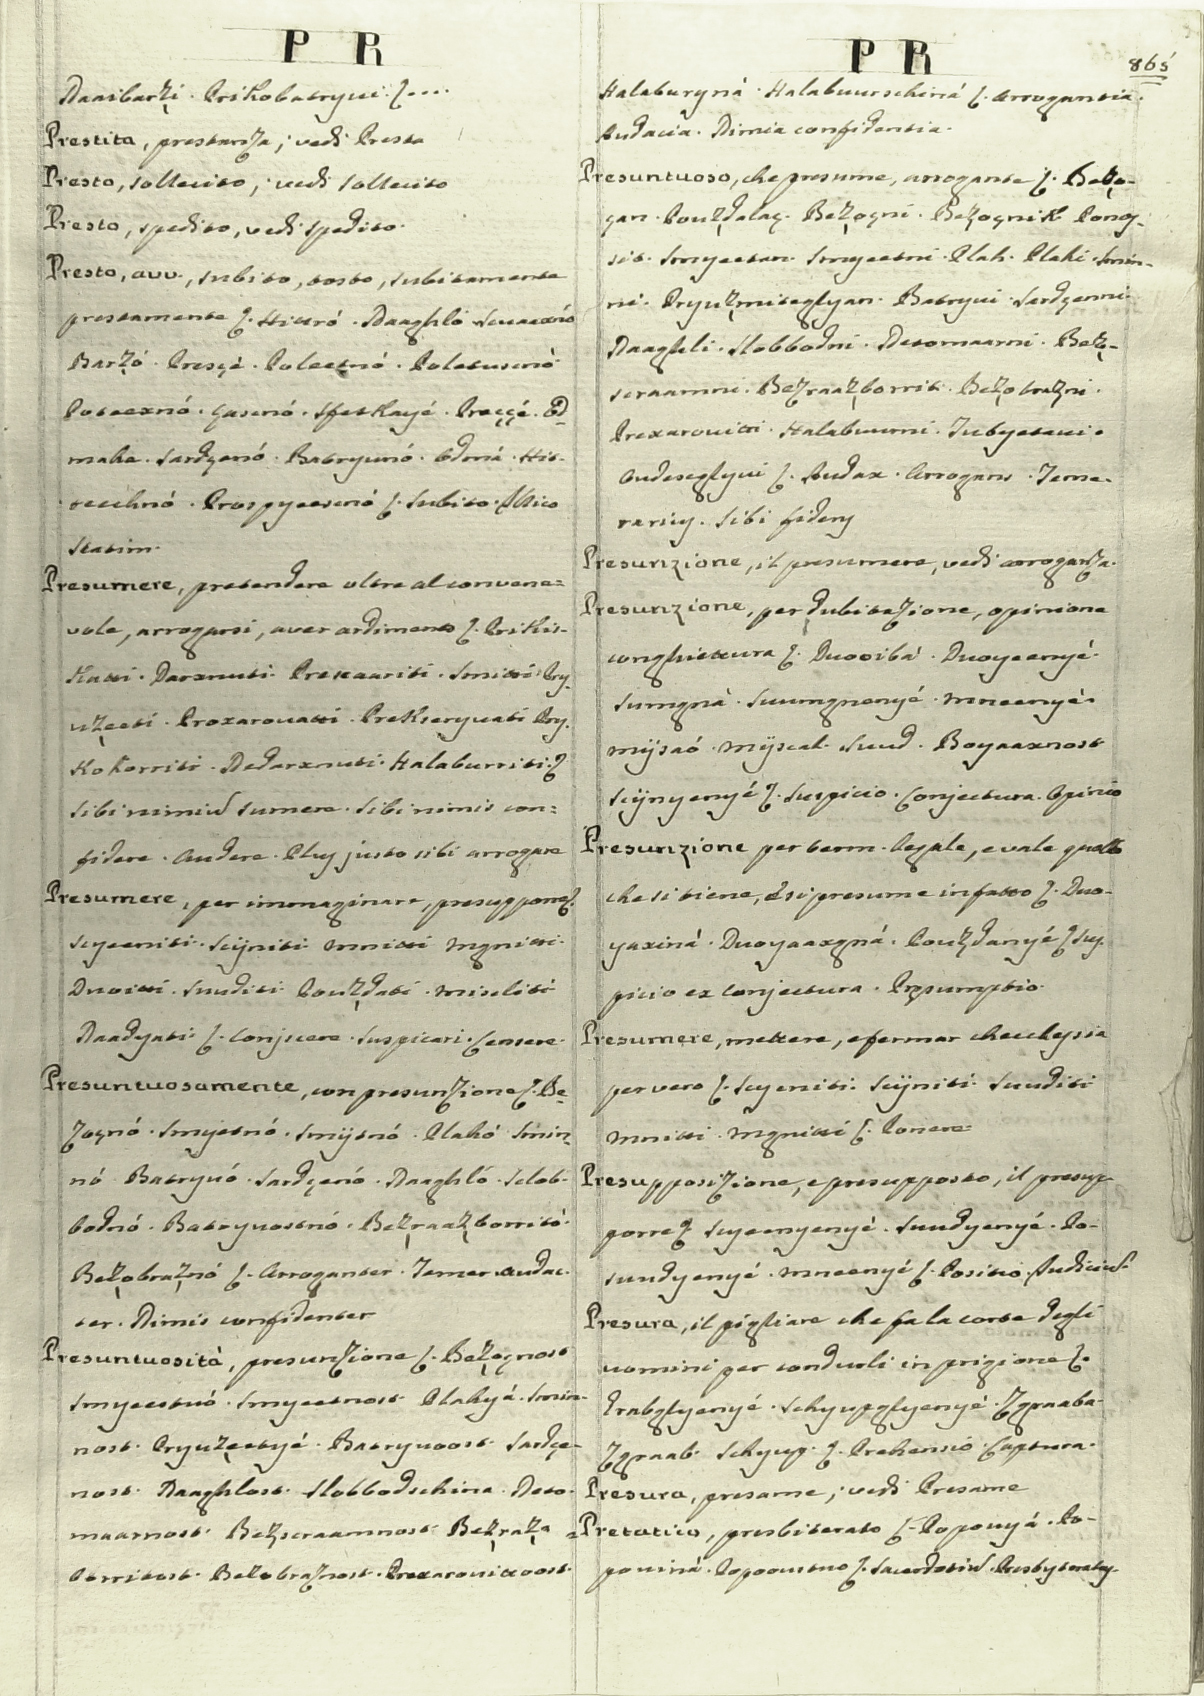 P R
Daasibarži. Prikobatryui. ζ....
Prestita, prestanza; vedi Presta
Presto, sollecito; vedi sollecito
Presto, spedito, vedi spedito.
Presto, avv., subito, tosto, subitamente
prestamente ζ. Hittró. Daaghlò
Baržó. Presçé. Poleetnó.
Çasenó. Preççé. Od
make. Sardçenó. Batryunó. Odmá. Hit-
recchnó. Prospyeesenó ζ. Subito. Illico
Statim.
Presumere, pretendere oltre al convene=
vole, arrogarsi, aver ardimento ζ. Prikis-
Darxnuti. Smitti. Pry
užeeti. Proxarovatti. Pry.
kokorriti. Dedarxnuti. Halaburriti. ζ
sibi nimiū sumere. Sibi nimis con=
fidere. Audere. Plus justo sibi arrogare
Presumere, per immaginare, presupporre ζ.
Scyeeniti. Scijniti mnitti mgnitti.
Dvoitti. Suuditi Použdati. misliti
Daadyati ζ. Conjicere. Suspicari. Censere.
Presuntuosamente, con presunzione ζ. Be-
zognó. Smyetnó. Smijtnó. Plahó Smin-
nó Batryuó. Sardçenó. Daaghló. Slob-
bodnó. Batryuostnó. Bežraažborritò.
Bežobražnó ζ. Arroganter. Temere. Audac-
ter. Nimis confidenter
Presuntuosità, presunzione ζ. Bežognost
Smyeestvó. Smyeetnost Plahyá. Smin-
nost. Pryužeetyé. Batryuoost. Sardçe-
nost. Daaghlost. Slobbodschina. Deto-
maarnost. Bežsraamnost. Bežraža
borritost. Bežobražnost. Prexarovittoost.
P R
865
Halaburyná. Halabuurschiná ζ. Arrogantia.
Audacia. Nimia confidentia.
Presuntuoso, che presume, arrogante ζ. Bežo-
çan. Použdalaç. Bežoçni. Bežoçnik Ponoj-
sit. Smyeetan. Smyeetni. Plah. Plahi. Smin-
ni. Pryužmiteglyan. Batryui. Sardçenni
Daaghli. Slobbodni. Detomaarni. Bež-
sraamni. Bežraažborrit. Bežobražni.
Prexarovitti. Halabuurni.
ζ. Audax. Arrogans. Teme-
rarius. Sibi fidens
Presunzione, il presumere, vedi arroganza.
Presunzione, per dubitazione, opinione
conghiettura ζ. Dvooibá. Dvoyeenyé.
Sumgná. Suumgnenyé. mneenyé.
mijsaó. mijscal. Suud. Boyaaxnost
Scijnyenyé ζ. Suspicio. Conjectura. Opinio
Presunzione per term. legale, e vale quello
che si tiene, e si presume in fatto ζ. Dvo-
yaxiná. Dvoyaaxgná. Použdanyé ζ Sus-
picio ex conjectura. Præsumptio.
Presumere, mettere, e fermar checchessia
per vero ζ. Scyeniti. Scijniti. Suuditi
Mnitti. Mgnitti ζ. Ponere.
Presupposizione, e presupposto, il presup-
porre ζ Scyeenyenyé. Suudyenyé. Po-
suudyenyé. Mneenyé ζ. Positio. Judiciū.
Presura, il pigliare che fa la corte degli
uomini per condurli in prigione ζ.
Schyupglyenyé. Zgraaba.
Zgraab. Schyup. ζ. Prehensio. Captura.
Presura, presame; vedi Presame
Pretatico, presbiterato ζ. Popovyá. Po-
poviná. Popovstvo ζ. Sacerdotiū. Presbyteratus.